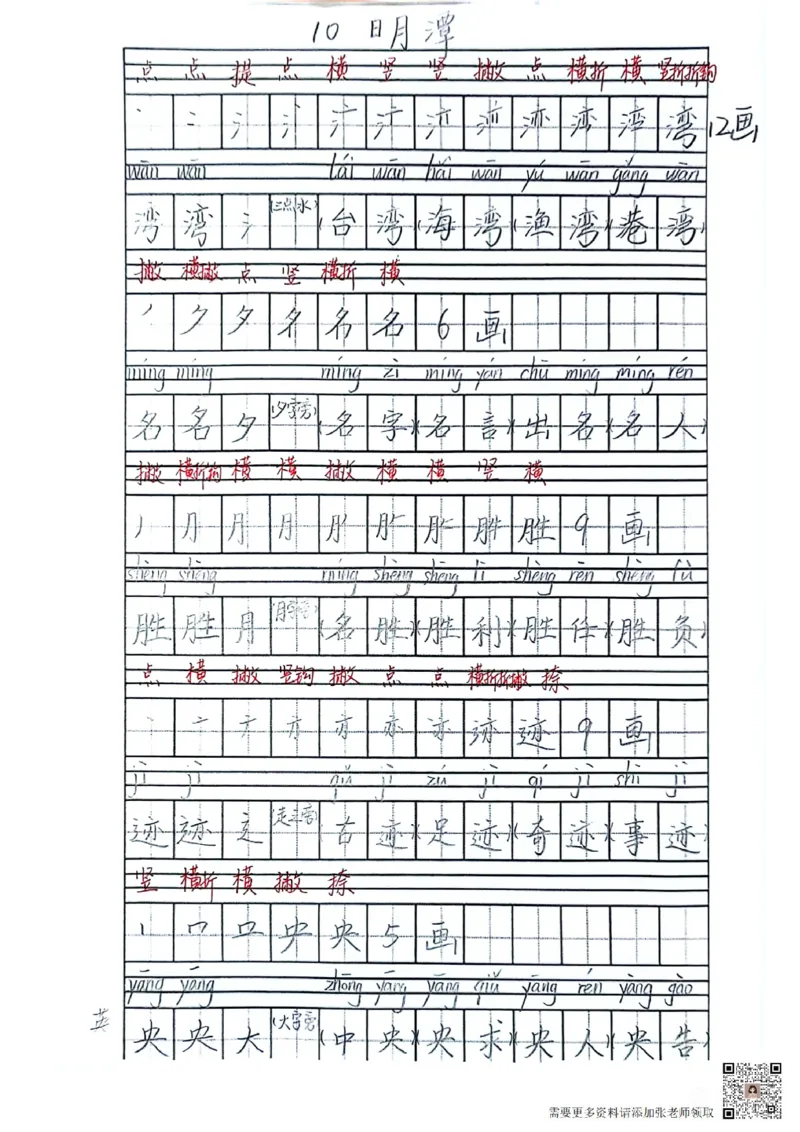 10 日月潭
点 点 提 点 横 竖 竖 撇 点 横折 横 竖折折钩
丶 冫 氵 湾 12画
wān wān tái wān hǎi wān yú wān gǎng wān
湾 湾 氵 (三点水) (台湾)(海湾)(渔湾)(港湾)
撇 横撇 点 竖 横折 横
丿 ク 夕 名 名 6 画
míng míng míng zì míng yán chū míng míng rén
名 名 夕 (夕字旁) (名字)(名言)(出名)(名人)
撇 横折钩 横 横 撇 横 横 竖 横
丿 月 月 胜 胜 9 画
shèng shèng míng shèng shèng lì shèng rèn shèng fù
胜 胜 月 (月字旁) (名胜)(胜利)(胜任)(胜负)
点 横 撇 竖钩 撇 点 点 横折折撇 捺
丶 亠 亦 迹 迹 9 画
jì jì gǔ jì zú jì qí jì shì jì
迹 迹 辶 (走之旁) 古迹)(足迹)(奇迹)(事迹)
竖 横折 横 撇 捺
丨 冖 央 央 5 画
yāng yāng zhōng yāng yāng qiú yāng rén yāng gào
英 央 央 大 (大字旁) (中央)(央求)(央人)(央告)
需要更多资料请添加张老师领取